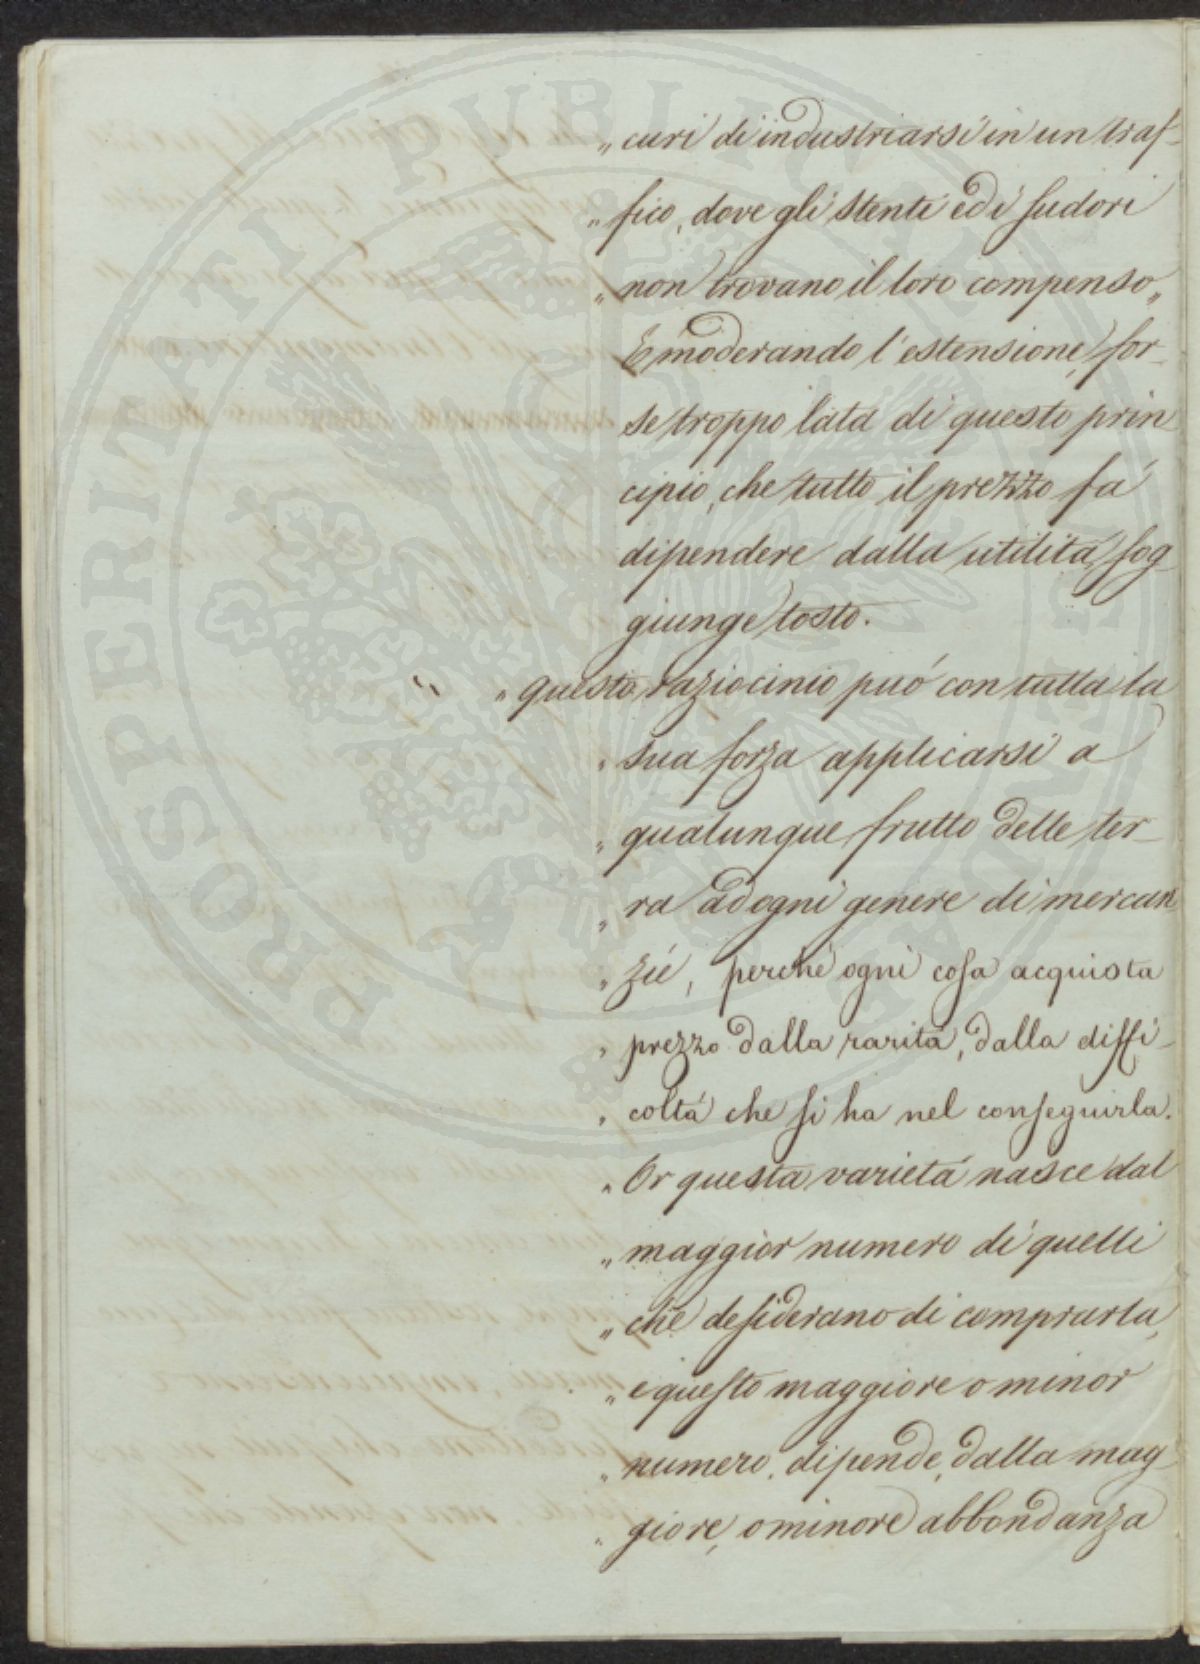 „ curi di industriarsi in un traf-
„ fico, dove gli stenti ed i sudori
„ non trovano il loro compenso„
E moderando l'estensione, for-
se troppo lata di questo prin
cipio, che tutto il prezzo fá
dipendere dalla utilitá, sog
giunge tosto.
„ questo raziocinio puó con tutta la
„ sua forza applicarsi a
„ qualunque frutto delle ter-
„ ra ad ogni genere di mercan
„ zie, perché ogni cosa acquista
„ prezzo dalla raritá, dalla diffi-
„ coltá che si ha nel conseguirla.
„ Or questa varietá nasce dal
„ maggior numero di quelli
„ che desiderano di comprarla,
„ e questo maggiore o minor
„ numero, dipende, dalla mag
„ giore, o minore abbondanza
PROSPERITATI PUBLICAE AUGENDAE